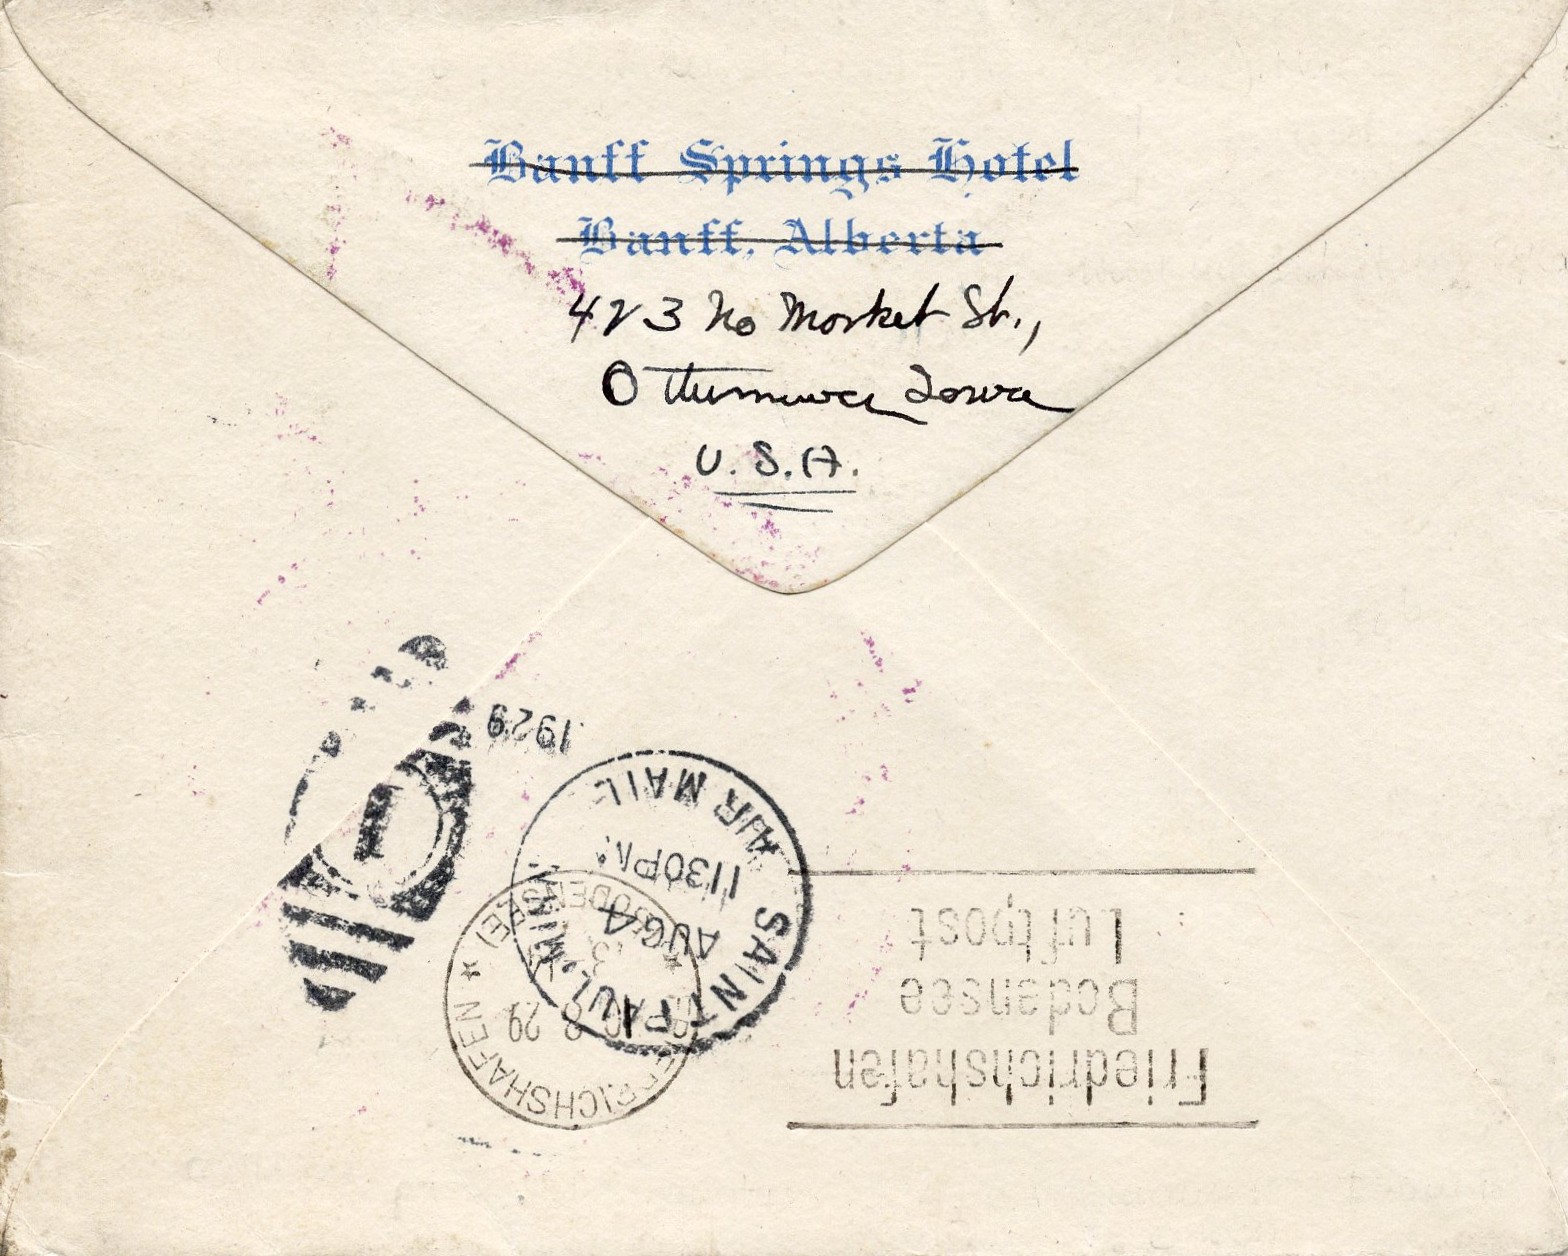 Banff Springs Hotel
Banff, Alberta
423 No Market St.,
Ottumwa Iowa
U.S.A.
1929
SAINT PAUL, MINN.
AIR MAIL
1130PM
AUG 4
1
FRIEDRICHSHAFEN
(BODENSEE)
10 8 29
Friedrichshafen
Bodensee
Luftpost